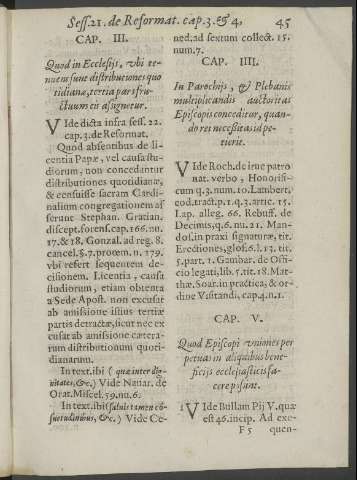 Sess. 21. de Reformat. cap. 3. & 4. 45
CAP. III.
Quod in Ecclesijs, vbi te-
nues sunt distributiones quo
tidianæ, tertia pars fru-
ctuum eis assignetur.
VIde dicta infra sess. 22.
cap. 3. de Reformat.
Quod absentibus de li-
centia Papæ, vel causa stu-
diorum, non concedantur
distributiones quotidianæ,
& censuisse sacram Cardi-
nalium congregationem as
serunt Stephan. Gratian.
discept. forens. cap. 166. nu.
17. & 18. Gonzal. ad reg. 8.
cancel. §. 7. proem. n. 179.
vbi refert sequentem de-
cisionem. Licentia, causa
studiorum, etiam obtenta
a Sede Apost. non excusat
ab amissione istius tertiæ
partis detractæ, sicut nec ex
cusat ab amissione cætera-
rum distributionum quoti-
dianarum.
In text. ibi (quæ inter dig-
nitates, &c.) Vide Nauar. de
Orat. Miscel. 59. nu. 6.
In text. ibi (saluis tamen cō-
suetudinibus, &c.) Vide Ce-
ned. ad sextum collect. 15.
num. 7.
CAP. IIII.
In Parochijs, & Plebanis
multiplicandis auctoritas
Episcopis conceditur, quan-
do res necessitas id pe-
tierit.
VIde Roch. de iure patro
nat. verbo, Honorifi-
cum q. 3. num. 10. Lambert.
eod. tract. p. 1. q. 3. artic. 15.
Lap. alleg. 66. Rebuff. de
Decimis, q. 6. nu. 21. Man-
dos. in praxi signaturæ, tit.
Erectiones, glos. 6. l. 13. tit.
5. part. 1. Gambar. de Offi-
cio legati, lib. 5. tit. 18. Mat-
thæ. Soar. in practica, & or-
dine Visitandi, cap. 4. n. 1.
CAP. V.
Quod Episcopi vniones per
petuas in aliquibus bene-
ficijs ecclesiasticis fa-
cere possint.
1 VIde Bullam Pij V. quæ
est 46. incip. Ad exe-
F 5 quen-